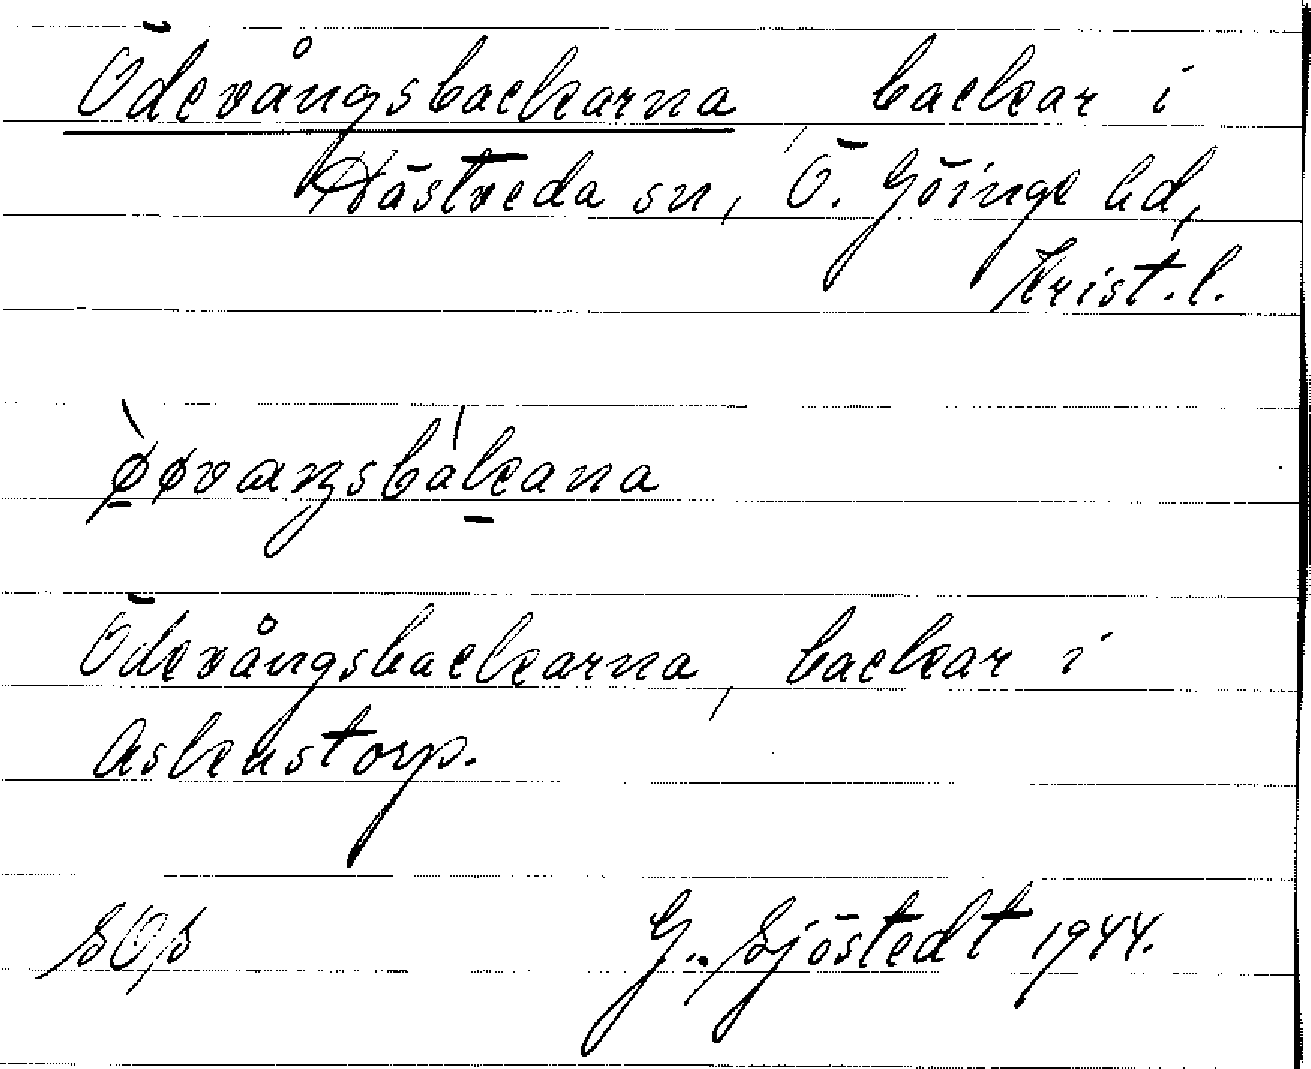 Ödevångsbackarna, backar i
Hästveda sn, Ö. Göinge hd,
Krist. l.
Ödevångsbackarna, backar i
Askenstorp.
G. Sjöstedt 1944.